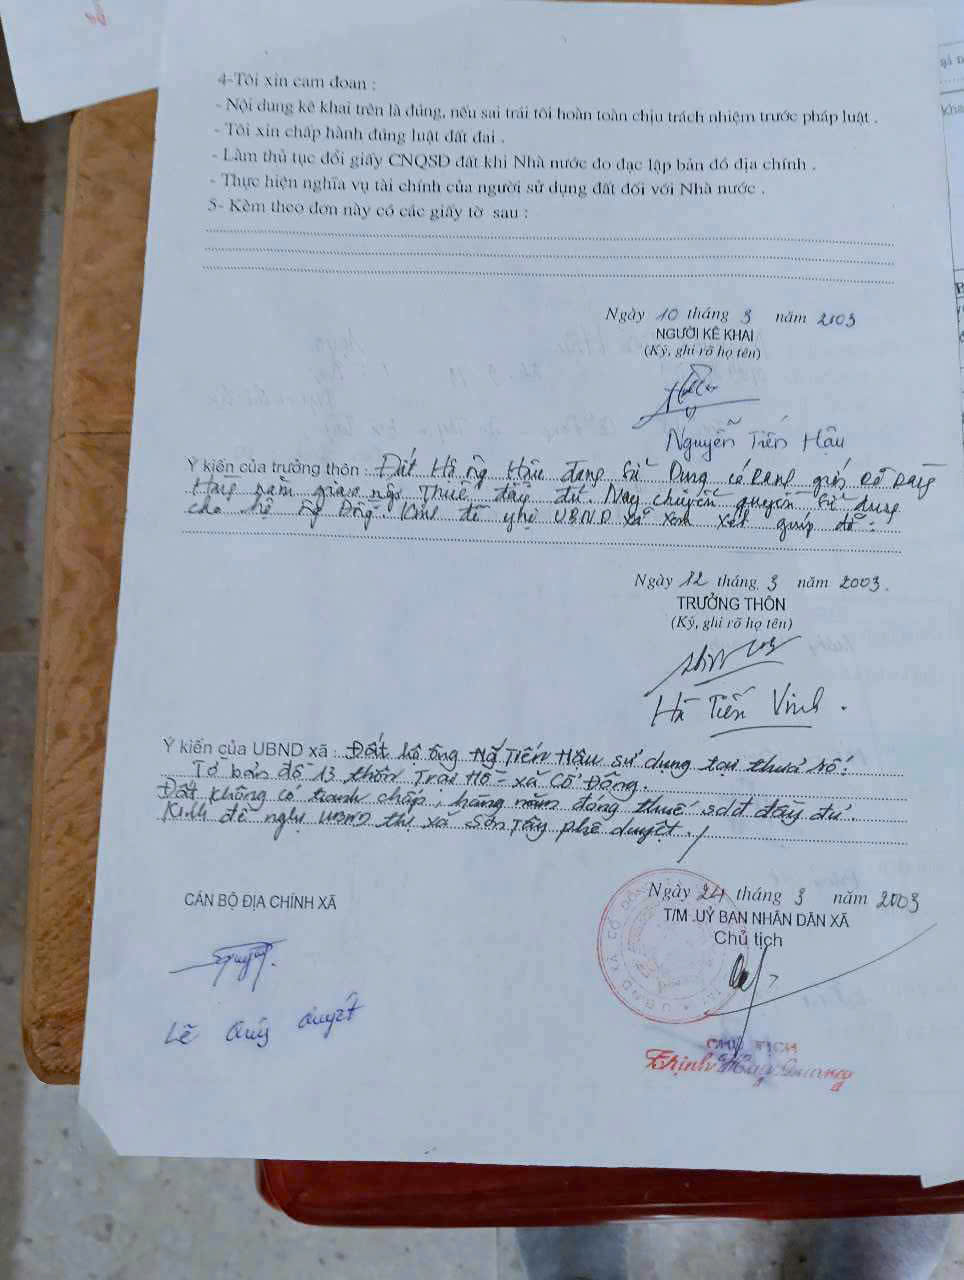 4-Tôi xin cam đoan :
- Nội dung kê khai trên là đúng, nếu sai trái tôi hoàn toàn chịu trách nhiệm trước pháp luật .
- Tôi xin chấp hành đúng luật đất đai .
- Làm thủ tục đổi giấy CNQSD đất khi Nhà nước đo đạc lập bản đồ địa chính .
- Thực hiện nghĩa vụ tài chính của người sử dụng đất đối với Nhà nước .
5- Kèm theo đơn này có các giấy tờ sau :
Ngày 10 tháng 3 năm 2003
NGƯỜI KÊ KHAI
(Ký, ghi rõ họ tên)
Nguyễn Tiến Hậu
Ý kiến của trưởng thôn : Đất Hộ ông Hậu đang sử Dụng có Ranh giới Rõ Ràng
Hàng năm giao nộp Thuế đầy đủ. Nay chuyển quyền sử dụng
cho hộ ông Đồng. Kính đề nghị UBND xã xem xét giúp đỡ.
Ngày 12 tháng 3 năm 2003.
TRƯỞNG THÔN
(Ký, ghi rõ họ tên)
Hà Tiến Vinh .
Ý kiến của UBND xã : Đất hộ ông Ng Tiến Hậu sử dụng tại thửa số:
Tờ bản đồ 13 thôn Trại Hồ - xã Cổ Đông.
Đất không có tranh chấp, hàng năm đóng thuế sdđ đầy đủ.
Kính đề nghị UBND thị xã Sơn Tây phê duyệt.
CÁN BỘ ĐỊA CHÍNH XÃ
Ngày 24 tháng 3 năm 2003
T/M .UỶ BAN NHÂN DÂN XÃ
Chủ tịch
Lê Quý Quyết
CHỦ TỊCH
Trịnh Huy Quang